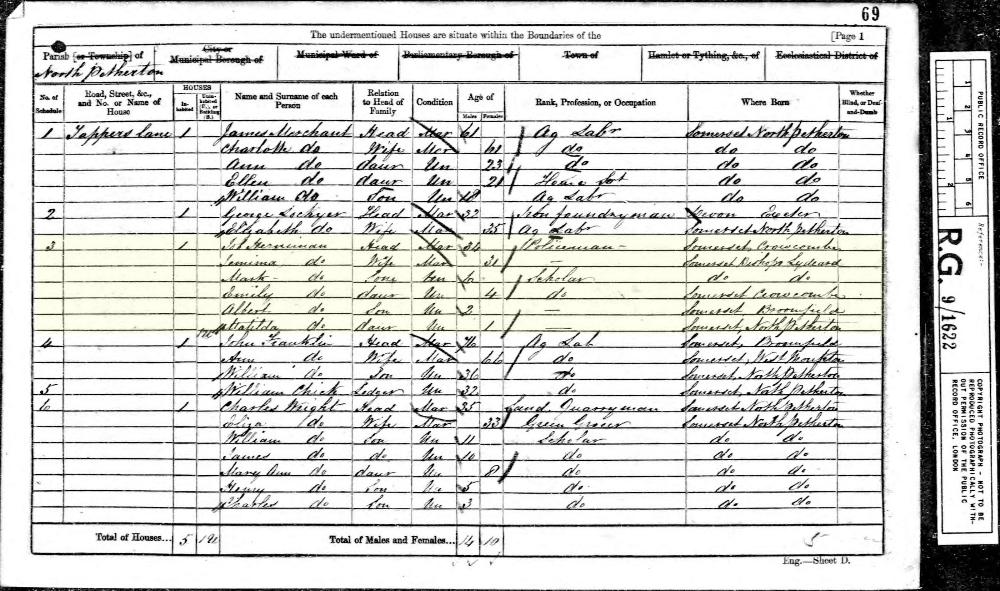 69
The undermentioned Houses are situate within the Boundaries of the [Page 1
Parish [or Township] of City or Municipal Borough of Municipal Ward of Parliamentary Borough of Town of Hamlet or Tything, &c., of Ecclesiastical District of
North Petherton
No. of Schedule Road, Street, &c., and No. or Name of House HOUSES Inhabited Uninhabited (U.), or Building (B.) Name and Surname of each Person Relation to Head of Family Condition Age of Males Females Rank, Profession, or Occupation Where Born Whether Blind, or Deaf-and-Dumb
1 Tappers Lane 1 James Merchant Head Mar 61 Ag Labr Somerset North Petherton
Charlotte do Wife Mar 61 do do do
Ann do daur Un 23 do do do
Ellen do daur Un 21 House do do
William do Son Un 18 Ag Labr do do
2 1 George Head Mar 32 Iron foundryman Devon Exeter
Elizabeth do Wife Mar 35 Ag Labr Somerset North Petherton
3 1 Head Mar 34 Policeman Somerset Crowcombe
Jemima do Wife Mar 31 — Somerset Bishops Lydeard
Mark do Son Un 6 Scholar do do
Emily do daur Un 4 do Somerset Crowcombe
Albert do Son Un 2 — Somerset, Broomfield
Matilda do daur Un 1 — Somerset, North Petherton
4 1 John Franklin Head Mar 76 Ag Lab Somerset, Broomfield
Ann do Wife Mar 66 do Somerset, West
William do Son Un 36 do Somerset North Petherton
5 William Chick Lodger Un 32 do Somerset, North Petherton
6 1 Charles Wright Head Mar 35 Land Quarryman Somerset North Petherton
Eliza do Wife Mar 33 Green Grocer Somerset North Petherton
William do Son Un 11 Scholar do do
James do do Un 10 do do do
Mary Ann do daur Un 8 do do do
Henry do Son Un 5 do do do
Charles do Son Un 3 do do do
Total of Houses... 5 Total of Males and Females... 14 10 5
Eng.—Sheet D.
PUBLIC RECORD OFFICE
1 2 3 4 5 6
Reference:-
R.G. 9/1622
COPYRIGHT PHOTOGRAPH - NOT TO BE REPRODUCED PHOTOGRAPHICALLY WITHOUT PERMISSION OF THE PUBLIC RECORD OFFICE, LONDON